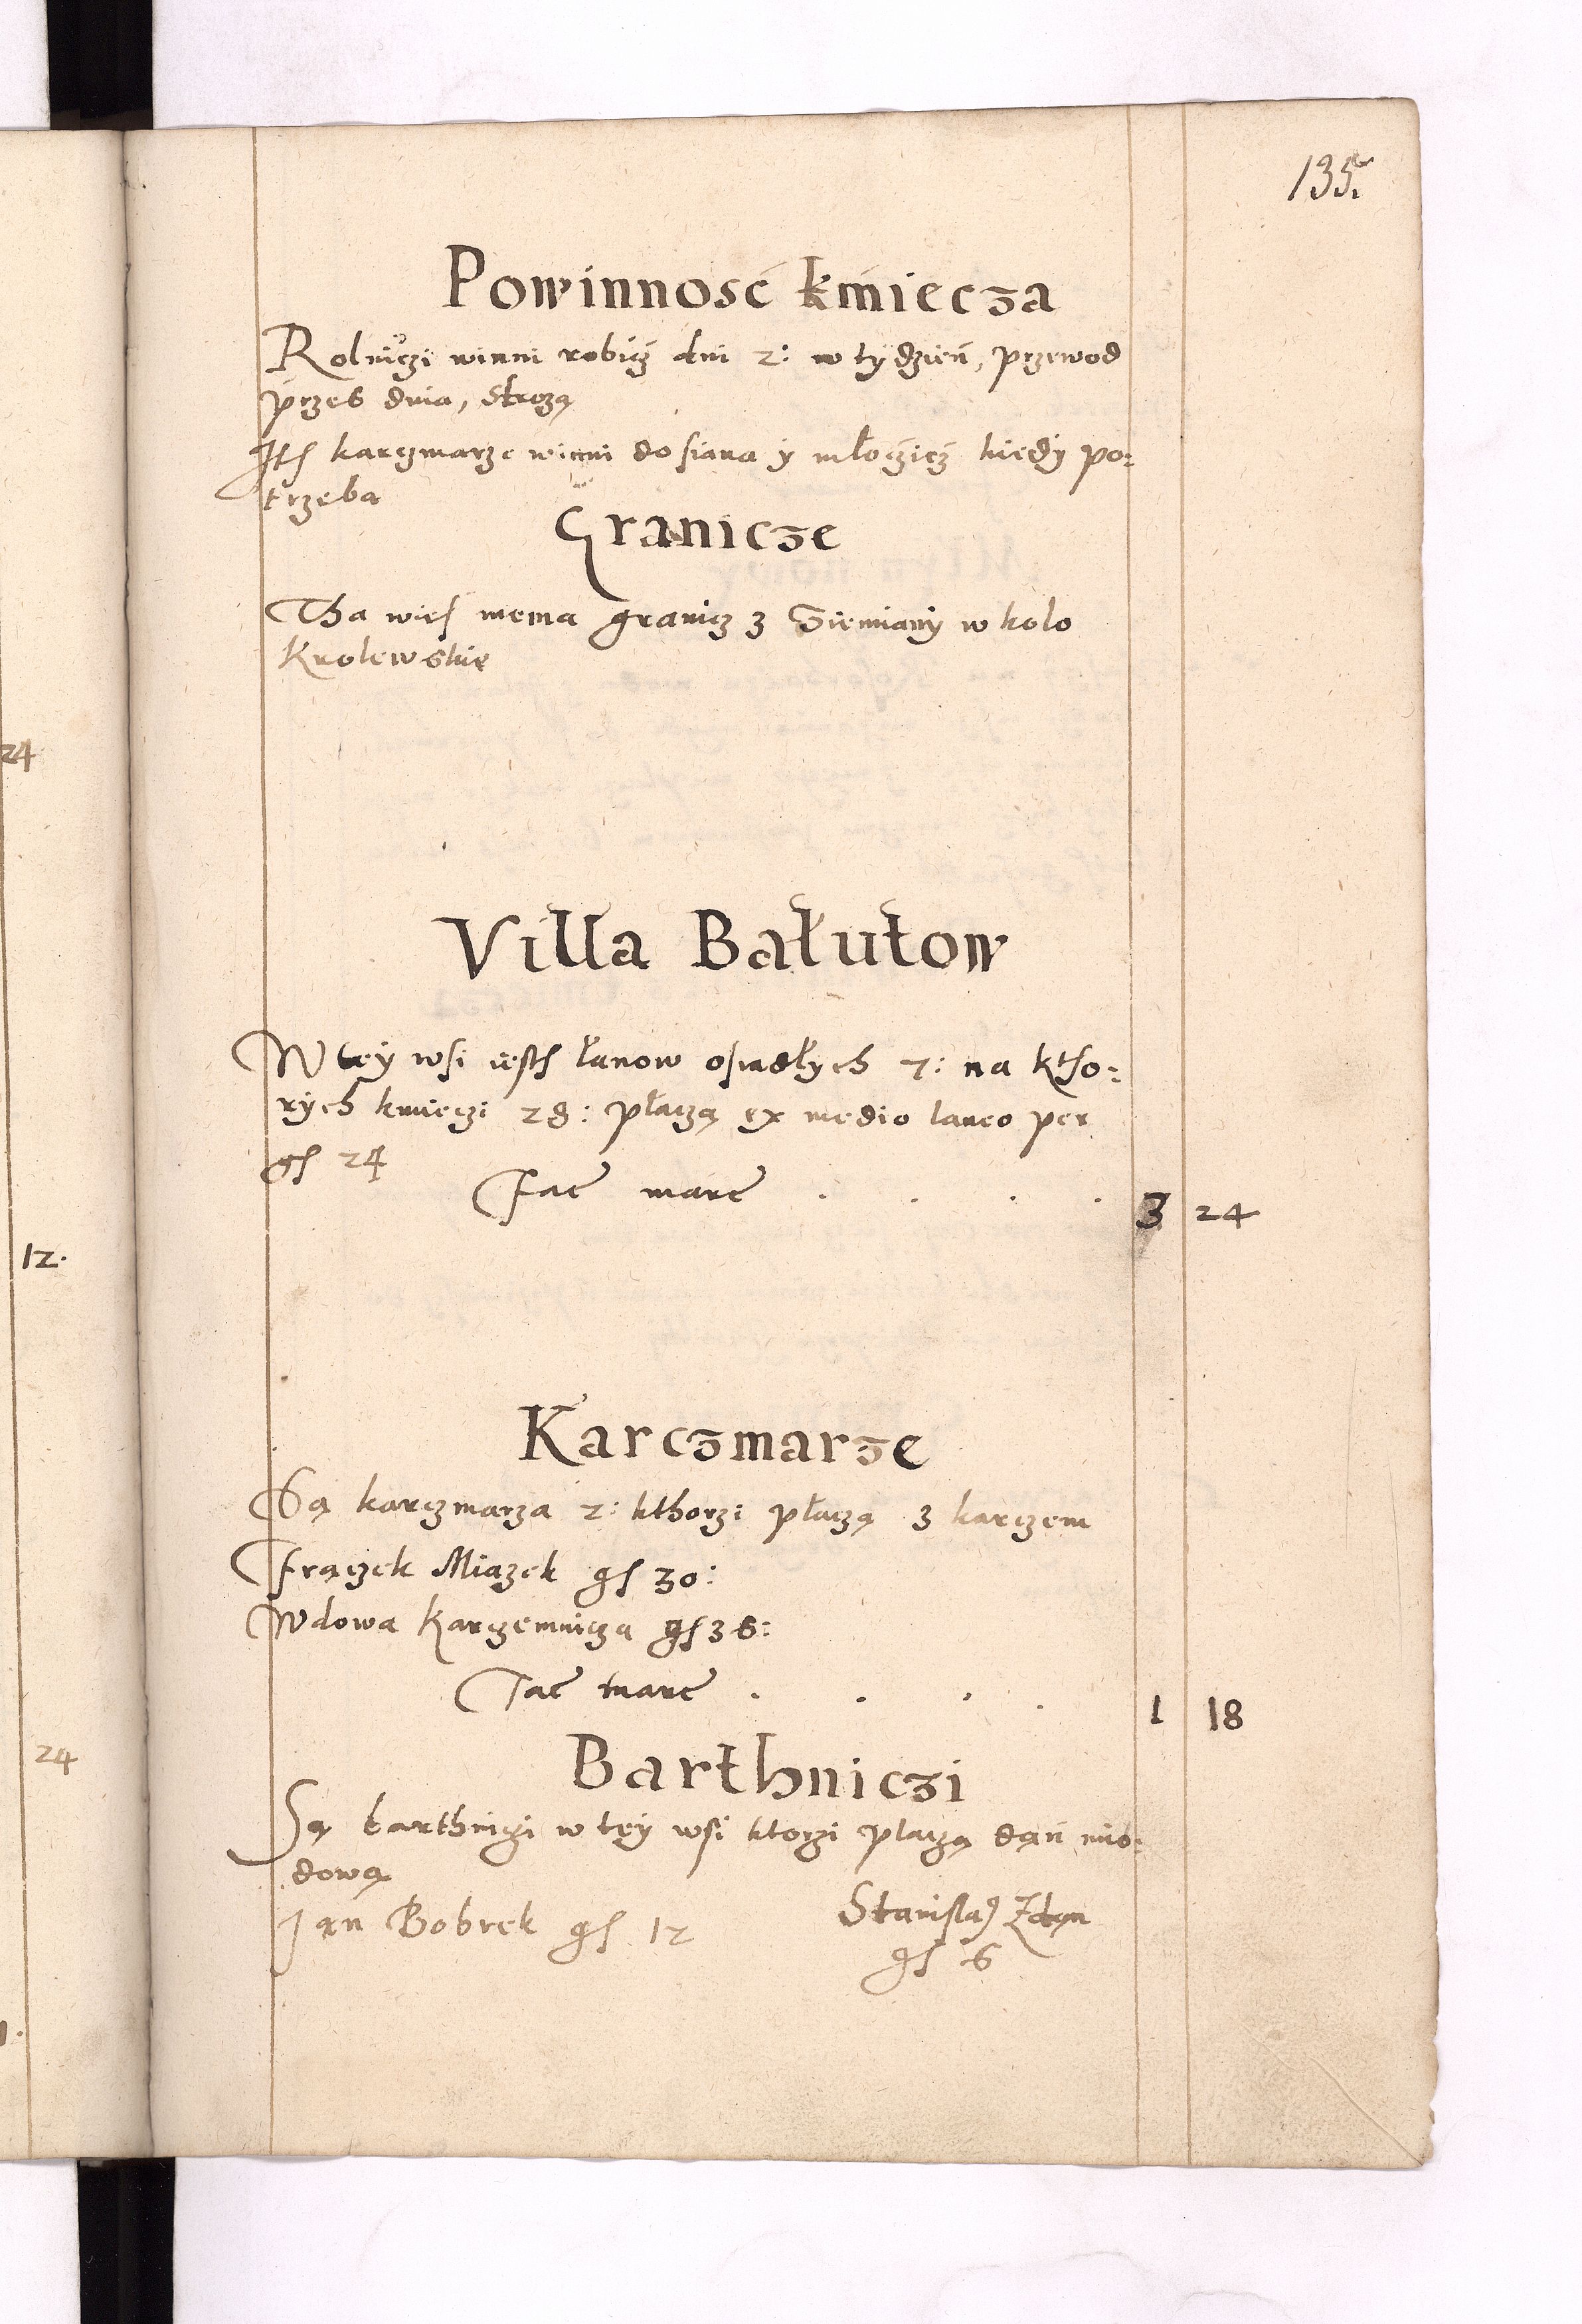 135
Powinnosć kmiecza
Rolniczi winni robicz dni 2: w tydzień, przewod
przes dnia, Strozą
Ith karczmarze winni do siana y młoczicz kiedy po:
trzeba
Granicze
Tha wieś nema granicz z Ziemiany w kolo
Krolewskie
24
Villa Bałutow
W tey wsi iesth łanow osiadłych 7: na ktho:
rych kmieczi 28: płaczą ex medio laneo per
gſ 24
Fac marc . . . . 3 24
12.
Karczmarze
Są karczmarza 2: kthorzi płaczą z karczem
Frączek Miazek gſ 30:
Wdowa Karczemnicza gſ 36:
Fac marc . . . . 1 18
24
Barthniczi
Są barthniczi w tey wsi ktorzi placzą dań mio:
dową
Jan Bobrek gſ 12 Stanislaꝰ
gſ 6